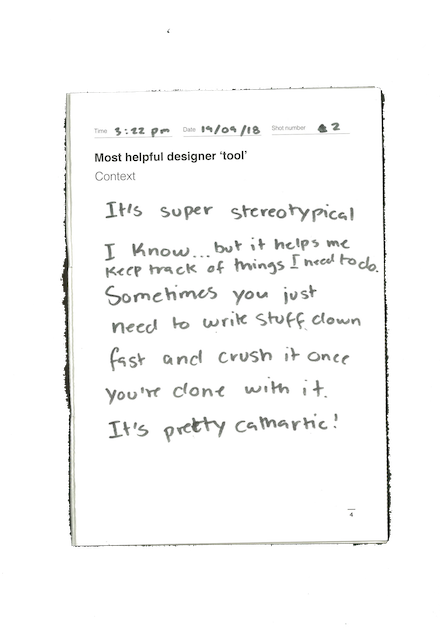 Time 3:22 pm Date 19/09/18 Shot number 2
Most helpful designer ‘tool’
Context
It's super stereotypical
I know...but it helps me
keep track of things I need to do.
Sometimes you just
need to write stuff down
fast and crush it once
you're done with it.
It's pretty cathartic!
4